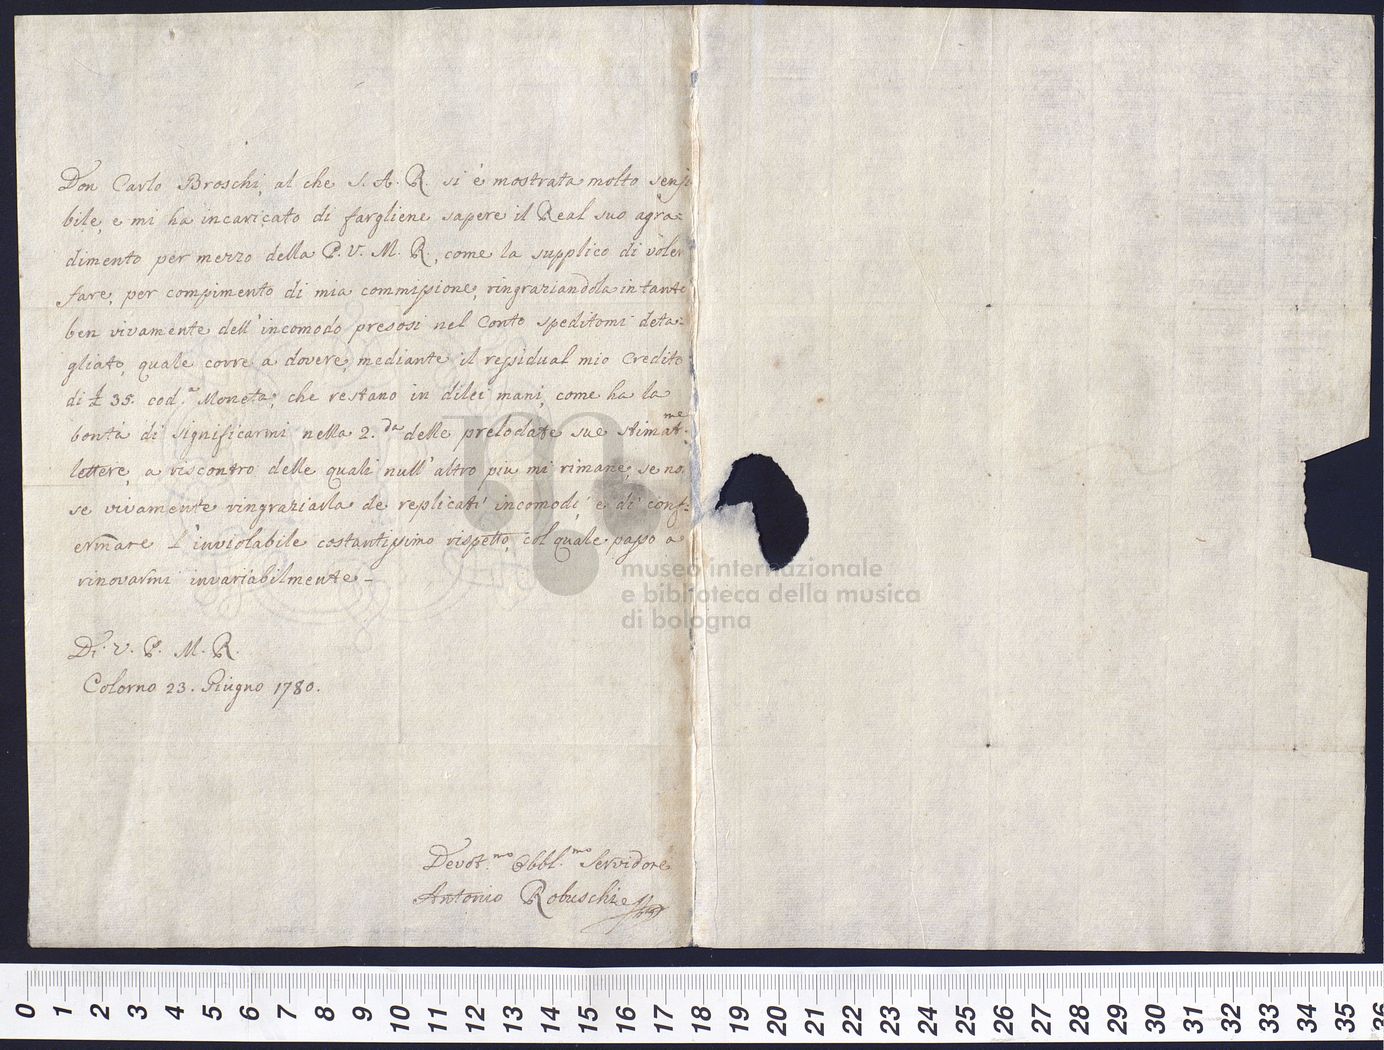 Don Carlo Broschi, al che S. A. R. si è mostrata molto sensi
bile, e mi ha incaricato di fargliene sapere il Real suo agra-
dimento per mezzo della P. V. M. R., come la supplico di voler
fare, per compimento di mia commissione, ringraziandola intanto
ben vivamente dell'incomodo presosi nel Conto speditomi deta-
gliato, quale corre a dovere, mediante il ressidual mio Credito
di £ 35. cod.ª Moneta, che restano in dilei mani, come ha la
bontà di significarmi nella 2.da delle prelodate sue stimat.me
lettere, a riscontro delle quali null'altro più mi rimane, se no
se vivamente ringraziarla de replicati incomodi, e di conf-
ermare l'inviolabile costantissimo rispetto, col quale passo a
rinovarmi invariabilmente -
Di V. P. M. R.
Colorno 23. Giugno 1780.
Devot.mo Obbl.mo Servidore
Antonio Robuschi
museo internazionale
e biblioteca della musica
di bologna
0 1 2 3 4 5 6 7 8 9 10 11 12 13 14 15 16 17 18 19 20 21 22 23 24 25 26 27 28 29 30 31 32 33 34 35 36